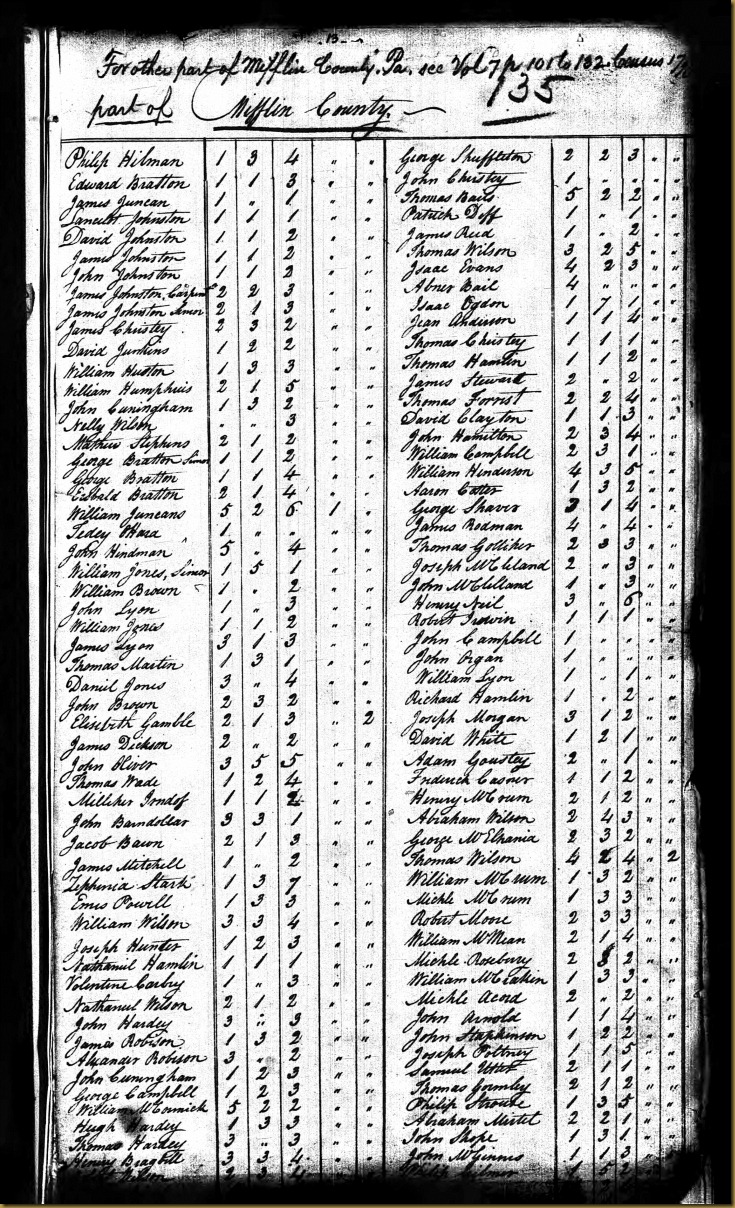 13
For other part of Mifflin County, Pa. see Vol 7 p 101 to 132 Census 17
135
part of Mifflin County.
Philip Hilman 1 3 4 " "
Edward Bratton 1 1 3 " "
James Juncan 1 " 1 " "
Lancelot Johnston 1 1 1 " "
David Johnston 1 1 2 " "
James Johnston 1 1 2 " "
John Johnston 1 1 2 " "
James Johnston, Carpint 2 2 3 " "
James Johnston Senior 2 1 3 " "
James Christey 2 3 2 " "
David Junkins 1 2 2 " "
William Huston 1 3 3 " "
William Humphris 2 1 5 " "
John Cuningham 1 3 2 " "
Nelly Wilson " " 3 " "
Mathew Stephens 2 1 2 " "
George Bratton Sinior 1 1 2 " "
George Bratton 1 1 4 " "
Bratton 2 1 4 " "
William Juncans 5 2 6 1 "
Tedey OHard 1 " " " "
John Hindman 5 " 4 " "
William Jones, Sinior 1 5 1 " "
William Brown 1 " 2 " "
John Lyon 1 " 3 " "
William Jones 1 1 2 " "
James Lyon 3 1 3 " "
Thomas Martin 1 3 1 " "
Daniel Jones 3 " 4 " "
John Brown 2 3 2 " "
Elisebeth Gamble 2 1 3 " 2
James Dickson 2 " 2 " "
John Oliver 3 5 5 " "
Thomas Wade 1 2 4 " "
Milliker 1 1 2 " "
John Barndollar 3 3 1 " "
Jacob Bawn 2 1 3 " "
James Mitchell 1 " 2 " "
Zephenia Stark 1 3 7 " "
Emis Powell 1 3 3 " "
William Wilson 3 3 4 " "
Joseph Hunter 1 2 3 " "
Nathaniel Hamlin 1 1 1 " "
Volentine Carbry 1 " 3 " "
Nathanuel Wilson 2 1 2 " "
John Hardey 3 " 3 " "
James Robison 1 3 2 " "
Alexander Robison 3 " 2 " "
John Cuningham 1 2 3 " "
George Campbell 1 2 3 " "
William McCormick 5 2 2 " "
Hugh Hardey 1 3 3 " "
Thomas Hardey 3 " 3 " "
Henry 3 3 4 " "
2 3 4 " "
George Shuffleton 2 2 3 " "
John Christey 1 " " " "
Thomas Bails 5 2 2 " "
Patrick Doff 1 " 1 " "
James Reed 1 " 2 " "
Thomas Wilson 3 2 5 " "
Isaac Evans 4 2 3 " "
Abner Bail 4 " " " "
Isaac Ogdon 1 7 1 " "
Jean Anderson 1 1 4 " "
Thomas Christey 1 1 1 " "
Thomas Hamlin 1 1 2 " "
James Steward 2 " 2 " "
Thomas Forrist 2 2 4 " "
David Clayton 1 1 3 " "
John Hamilton 2 3 4 " "
William Campbill 2 3 1 " "
William Henderson 4 3 5 " "
Aaron Cotter 1 3 2 " "
George Shaver 3 1 4 " "
James Rodman 4 " 4 " "
Thomas Golliher 2 3 3 " "
Joseph McCleland 2 " 3 " "
John McClelland 1 " 3 " "
Henery Neil 3 " 6 " "
Robert Irdwin 1 1 1 " "
John Campbell 1 " " " "
John Organ 1 " " " "
William Lyon 1 " 1 " "
Richard Hamlin 1 " 2 " "
Joseph Morgan 3 1 2 " "
David White 1 2 1 " "
Adam Goustey 2 " 1 " "
Frederick Casner 1 1 2 " "
Henery McCrum 2 1 2 " "
Abraham Wilson 2 4 3 " "
George McElhania 2 3 2 " "
Thomas Wilson 4 2 4 " 2
William McCrum 1 3 2 " "
Michle McCrum 1 3 3 " "
Robert Moore 2 3 3 " "
William McMean 2 1 4 " "
Michle Roseberry 2 3 2 " "
William McCrakin 1 3 3 " "
Michle Acord 2 " 2 " "
John Arnold 1 1 4 " "
John Stephinson 1 2 2 " "
Joseph Poltney 1 1 5 " "
Samuel Utter 2 1 1 " "
Thomas Gormley 2 1 2 " "
Philip Stroude 1 3 5 " "
Abraham Mirtel 2 2 1 " "
John Shope 1 3 1 " "
John McGinnis 1 1 3 " "
1 5 2 " "